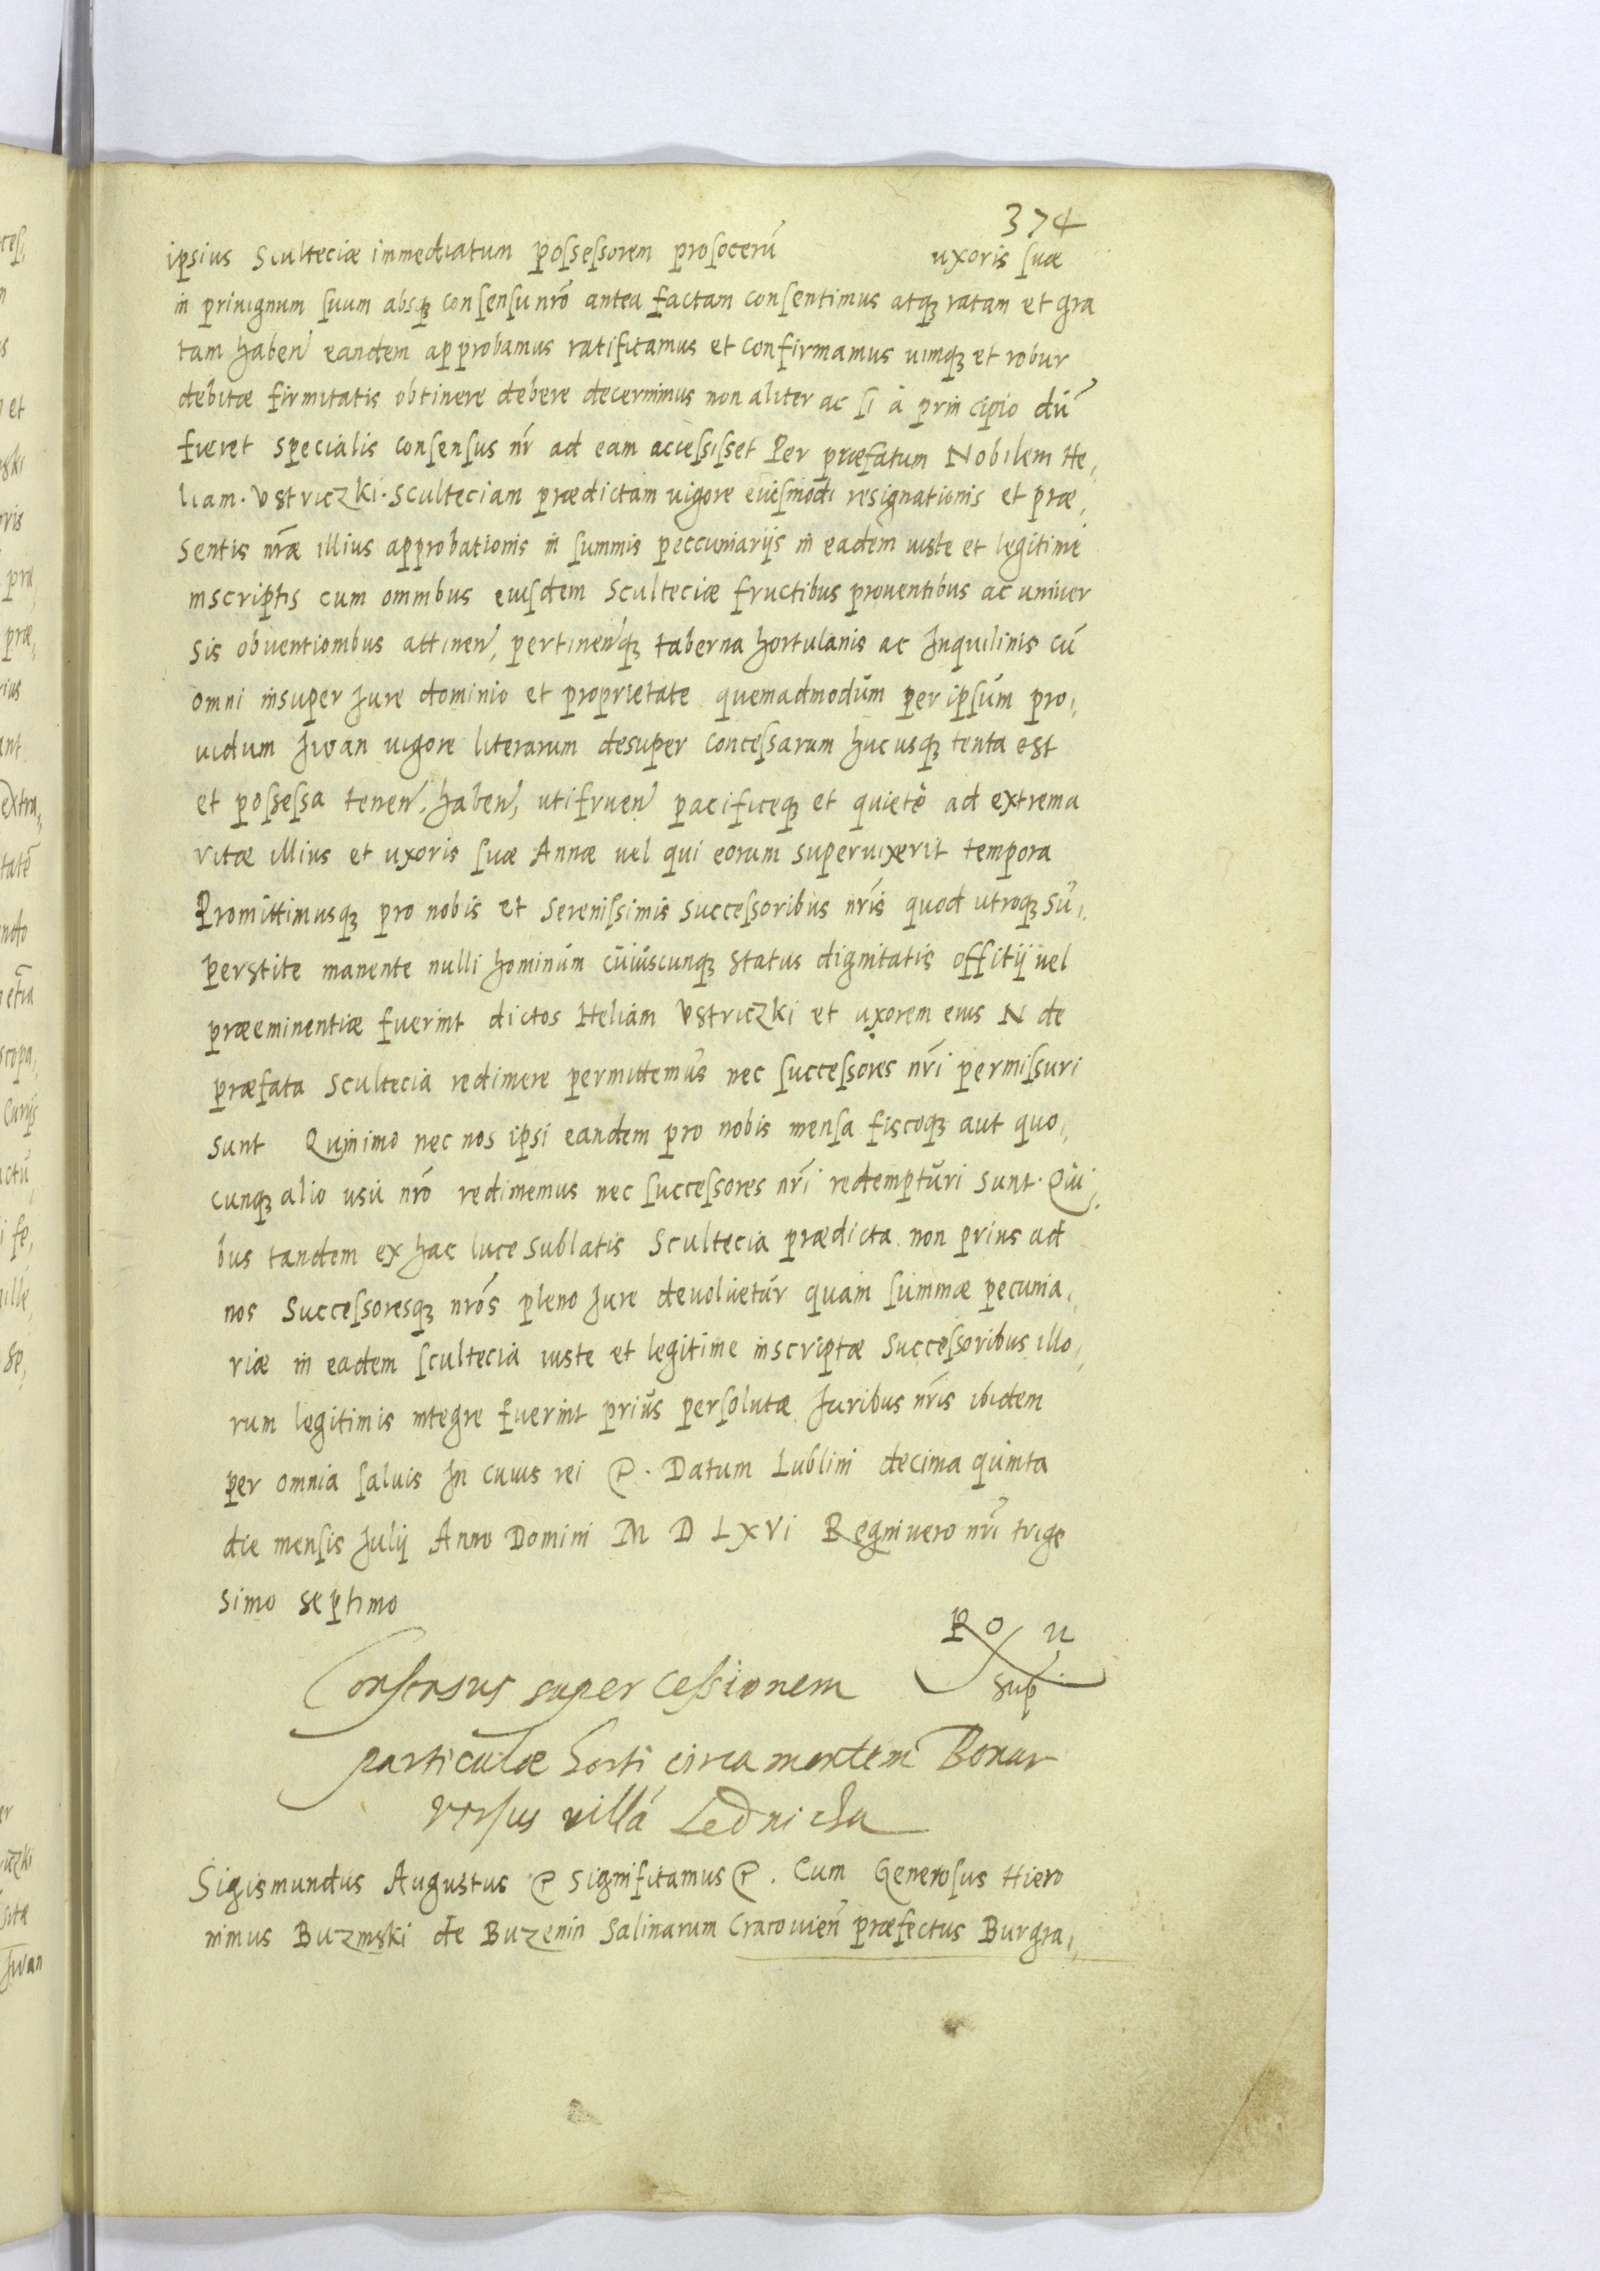 374
ipsius Sculteciæ immediatum poſseſsorem proſocerũ uxoris ſuæ
in priuignum ſuum absqꝫ conſenſu nr̃o antea factam conſentimus atqꝫ ratam et gra
tam haben̄ eandem approbamus ratificamus et confirmamus uimqꝫ et robur
debitæ firmitatis obtinere debere decernimus non aliter ac ſi à principio dũ
fieret specialis conſenſus nr̃ ad eam acceſsiſset Per præfatum Nobilem He,
liam Vstriczki Sculteciam prædictam uigore euiſmodi resignationis et præ,
sentis nr̃æ illius approbationis in ſummis peccuniarijs in eadem iuste et legitime
inscriptis cum omnibus eiuſdem Sculteciæ fructibus prouentibus ac uniuer
sis obuentionibus attinen̄, pertinen̄qꝫ taberna hortulanis ac Inquilinis cũ
omni insuper Jure dominio et proprietate quemadmodum per ipſum pro,
uidum Jwan uigore literarum desuper conceſsarum hucusqꝫ tenta est
et poſseſsa tenen̄, haben̄, utifruen̄ pacificeqꝫ et quietè ad extrema
vitæ illius et uxoris ſuæ Annæ uel qui eorum superuixerit tempora
Promittimusqꝫ pro nobis et Sereniſsimis Succeſsoribus nr̃is quod utroqꝫ Su,
perstite manente nulli hominum cuiuscunqꝫ status dignitatis offitij uel
præeminentiæ fuerint dictos Heliam Vstriczki et uxorem eius N de
præfata Scultecia redimere permittemus nec ſucceſsores nr̃i permiſsuri
sunt Quinimo nec nos ipsi eandem pro nobis menſa fiscoqꝫ aut quo,
cunqꝫ alio usu nr̃o redimemus nec ſucceſsores nr̃i redempturi sunt. Qui,
bus tandem ex hac luce sublatis Scultecia prædicta non prius ad
nos Succeſsoresqꝫ nr̃os pleno Jure deuoluetur quam ſummæ pecunia,
riæ in eadem ſcultecia iuste et legitime inscriptæ Succeſsoribus illo,
rum legitimis integre fuerint prius perſolutæ Juribus nr̃is ibidem
per omnia ſaluis In cuius rei ꝛc. Datum Lublini decima quinta
die menſis Julij Anno Domini M D LXVI Regni uero nr̃i trige
simo septimo
R O U
Sup
Conſensus super ceſsionem
particulæ horti circa montem Bonar
verſus villã Lednicka
Sigismundus Augustus ꝛc Significamus ꝛc. Cum Generoſus Hiero
nimus Buzinski de Buzenin Salinarum Cracouien̄ præfectus Burgra,